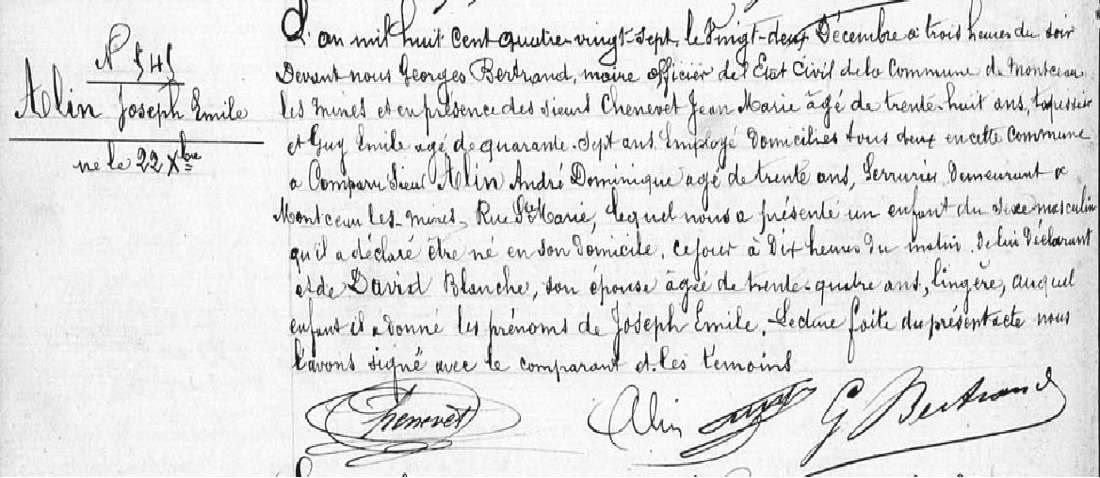 N° 545
Alin Joseph Emile
né le 22 Xbre
L'an mil huit cent quatre-vingt-sept, le vingt-deux Décembre à trois heures du soir
Devant nous Georges Bertrand, maire officier de l'Etat Civil de la Commune de Montceau
les mines et en présence des sieurs Chenevet Jean Marie âgé de trente-huit ans, tapissier
et Guy Emile agé de quarante-sept ans Employé Domiciliés tous deux en cette Commune
a Comparu Sieur Alin André Dominique agé de trente ans, Serrurier Demeurant à
Montceau les-mines, Rue Ste Marie, lequel nous a présenté un enfant du sexe masculin
qu'il a déclaré être né en son domicile, ce jour à Dix heures du matin. de lui déclarant
et de David Blanche, son épouse âgée de trente-quatre ans, lingère, auquel
enfant il a donné les prénoms de Joseph Emile. Lecture faite du présent acte nous
l'avons signé avec le comparant et les témoins
Chenevet Alin G Bertrand